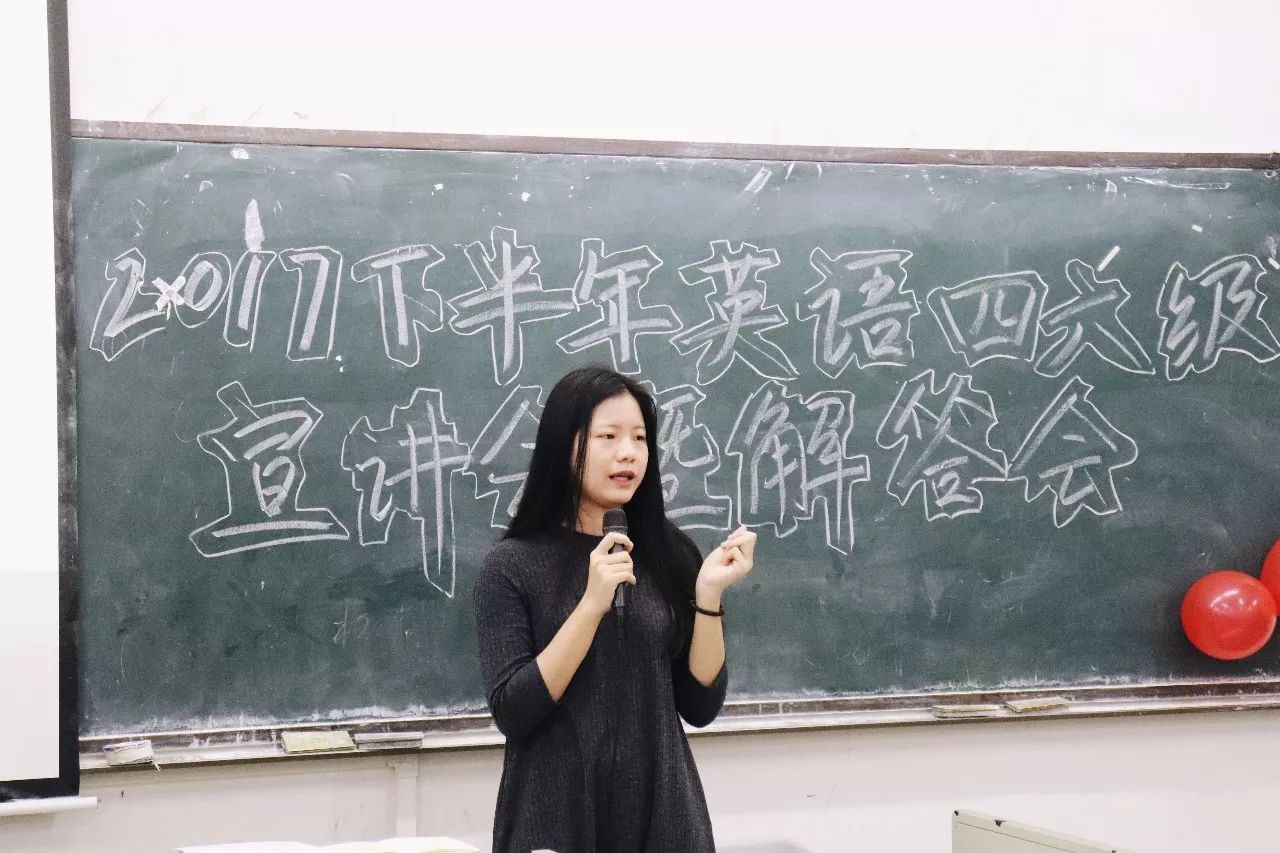 2017下半年英语四六级
宣讲会暨解答会